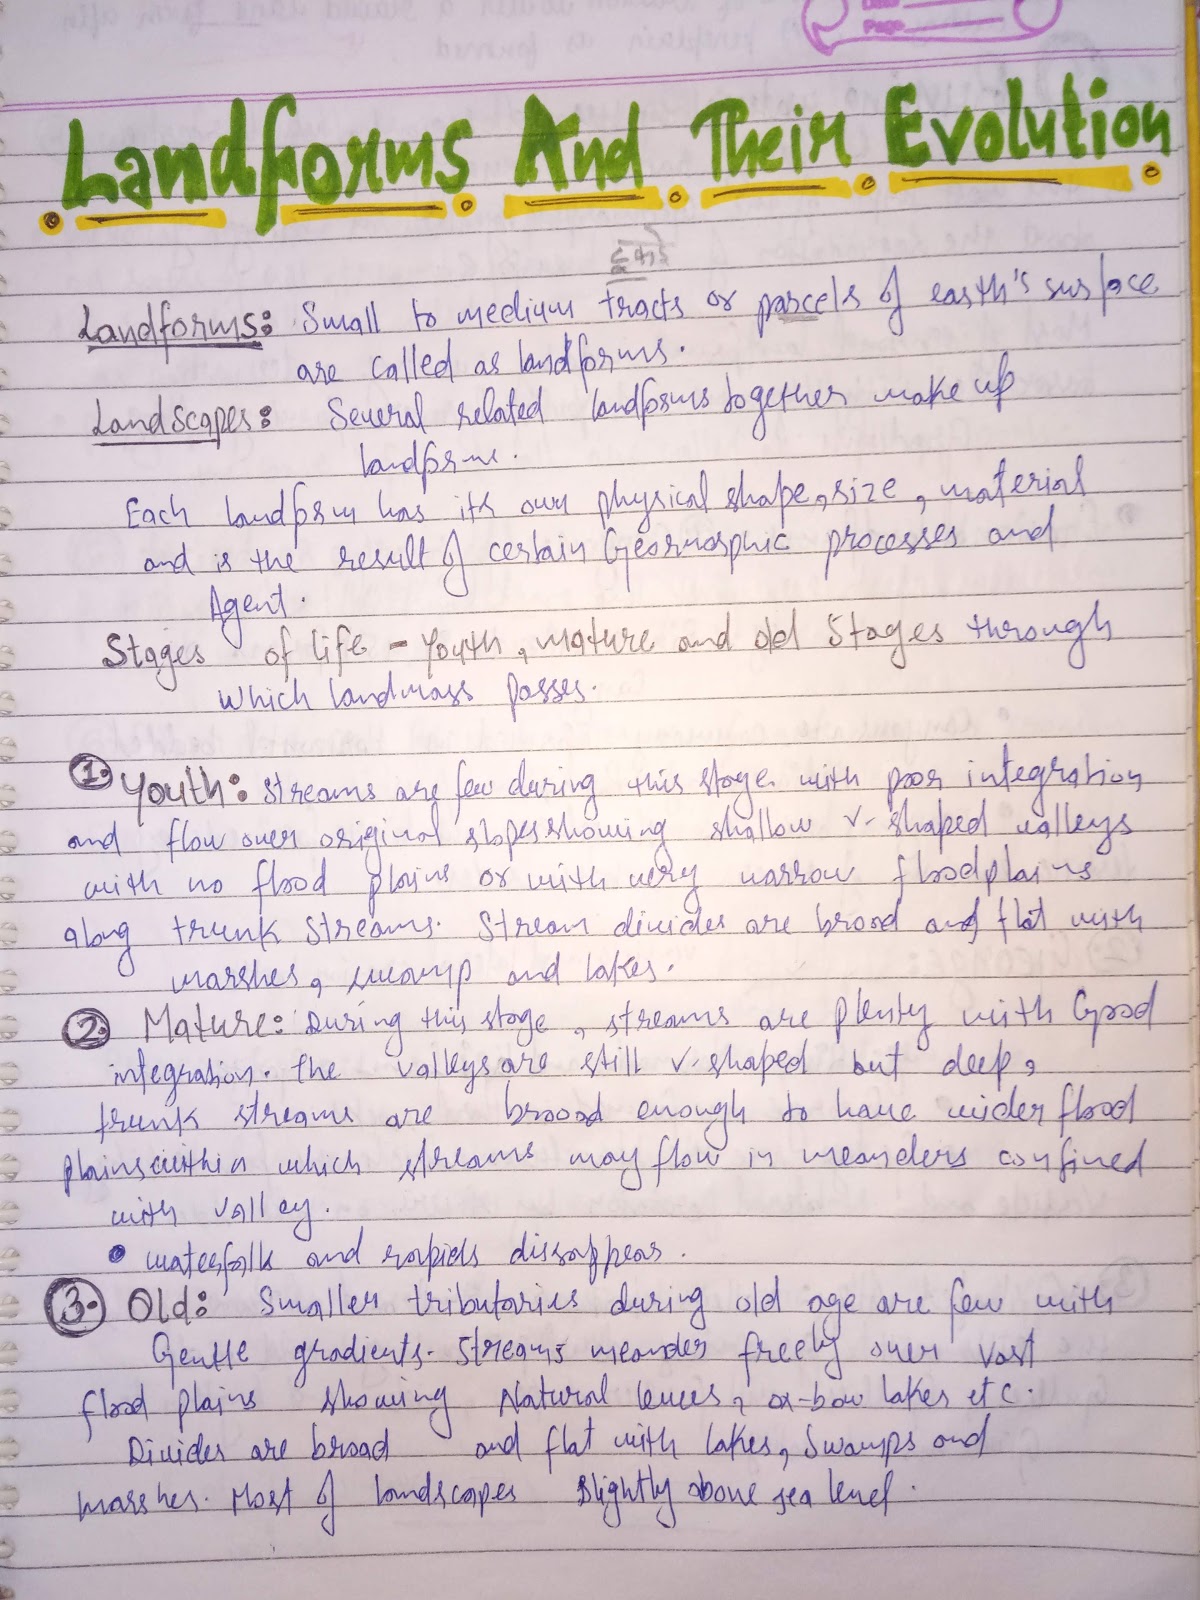 Page
Landforms And Their Evolution
टुकड़े
Landforms: Small to medium tracts or parcels of earth's surface
are called as landforms.
Landscapes: Several related landforms together make up
landform.
Each landform has its own physical shape, size, material
and is the result of certain Geormorphic processes and
Agent.
Stages of life - Youth, mature and old Stages through
which landmass passes.
1. Youth: Streams are few during this stage with poor integration
and flow over original slopes showing shallow v-shaped valleys
with no flood plains or with very narrow floodplains
along trunk streams. Stream divides are broad and flat with
marshes, swamp and lakes.
2. Mature: During this stage, streams are plenty with Good
integration. the valleys are still v-shaped but deep,
trunk streams are broad enough to have wider flood
plains within which streams may flow in meanders confined
with valley.
• waterfalls and rapids dissappear.
3. Old: Smaller tributaries during old age are few with
Gentle gradients. Streams meander freely over vast
flood plains showing Natural levees, ox-bow lakes etc.
Divides are broad and flat with lakes, swamps and
marshes. Most of landscapes slightly above sea level.